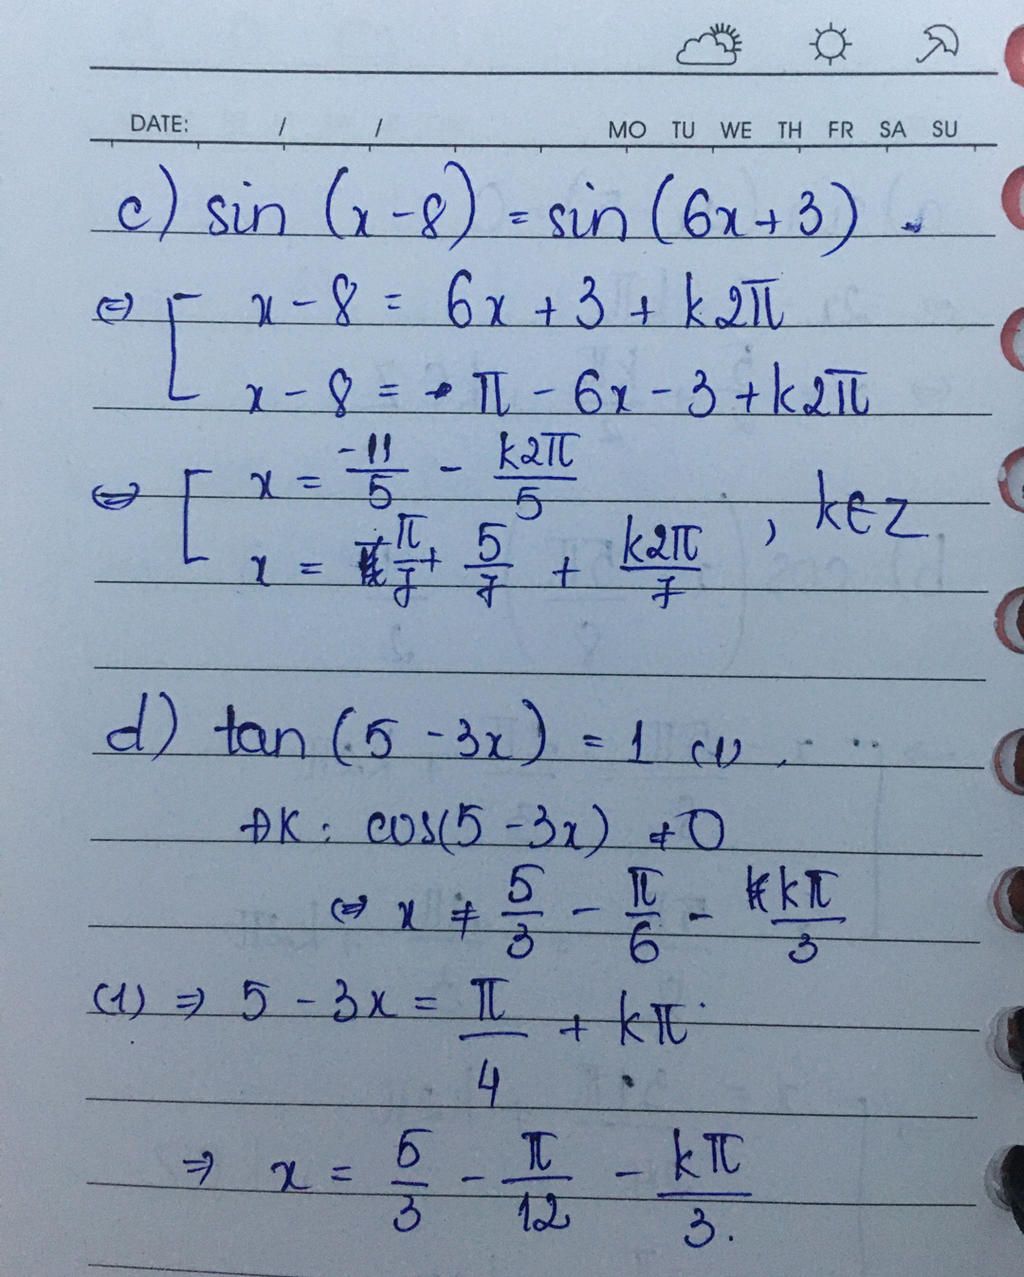 DATE: / / MO TU WE TH FR SA SU
c) sin (x-8) = sin (6x+3)
⇔ [ x - 8 = 6x + 3 + k2π
x - 8 = π - 6x - 3 + k2π
⇔ [ x = -11/5 - k2π/5
x = π/7 + 5/7 + k2π/7 , k∈Z
d) tan (5 - 3x) = 1 (1)
ĐK: cos(5 - 3x) ≠ 0
⇔ x ≠ 5/3 - π/6 - kπ/3
(1) ⇒ 5 - 3x = π/4 + kπ
⇒ x = 5/3 - π/12 - kπ/3.